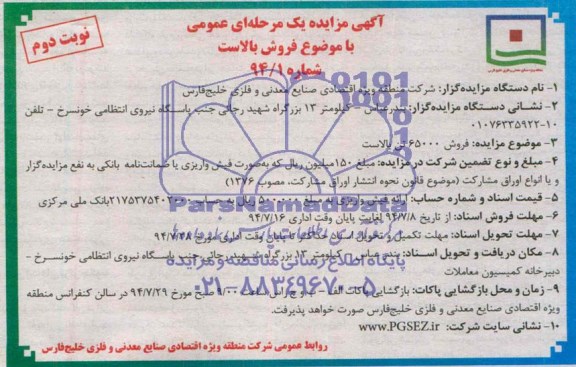 آگهی مزایده یک مرحله‌ای عمومی
با موضوع فروش بالاست
شماره ۹۴/۱
نوبت دوم
۱- نام دستگاه مزایده‌گزار: شرکت منطقه ویژه اقتصادی صنایع معدنی و فلزی خلیج‌فارس
۲- نشانی دستگاه مزایده‌گزار: بندرعباس - کیلومتر ۱۳ بزرگراه شهید رجائی جنب پاسگاه نیروی انتظامی خونسرخ - تلفن
۳- موضوع مزایده: فروش ۶۵۰۰۰ تن بالاست
۴- مبلغ و نوع تضمین شرکت در مزایده: مبلغ ۱۵۰ میلیون ریال که به‌صورت فیش واریزی یا ضمانت‌نامه بانکی به نفع مزایده‌گزار
و یا انواع اوراق مشارکت (موضوع قانون نحوه انتشار اوراق مشارکت، مصوب ۱۳۷۶)
۵- قیمت اسناد و شماره حساب: ارائه فیش واریزی به مبلغ ۵۰۰،۰۰۰ ریال به حساب بانک ملی مرکزی
۶- مهلت فروش اسناد: از تاریخ ۹۴/۷/۸ لغایت پایان وقت اداری ۹۴/۷/۱۶
۷- مهلت تحویل اسناد: مهلت تکمیل و تحویل اسناد حداکثر تا پایان وقت اداری مورخ ۹۴/۷/۲۸
۸- مکان دریافت و تحویل اسناد: بندرعباس - کیلومتر ۱۳ بزرگراه شهید رجایی جنب پاسگاه نیروی انتظامی خونسرخ -
دبیرخانه کمیسیون معاملات
۹- زمان و محل بازگشایی پاکات: بازگشایی پاکات الف، ب و ج راس ساعت ۹/۰۰ صبح مورخ ۹۴/۷/۲۹ در سالن کنفرانس منطقه
ویژه اقتصادی صنایع معدنی و فلزی خلیج‌فارس صورت خواهد پذیرفت.
۱۰- نشانی سایت شرکت: www.PGSEZ.ir
روابط عمومی شرکت منطقه ویژه اقتصادی صنایع معدنی و فلزی خلیج‌فارس
ParsNamadData
پایگاه اطلاع رسانی مناقصه و مزایده
۰۲۱-۸۸۳۴۹۶۷۰-۵